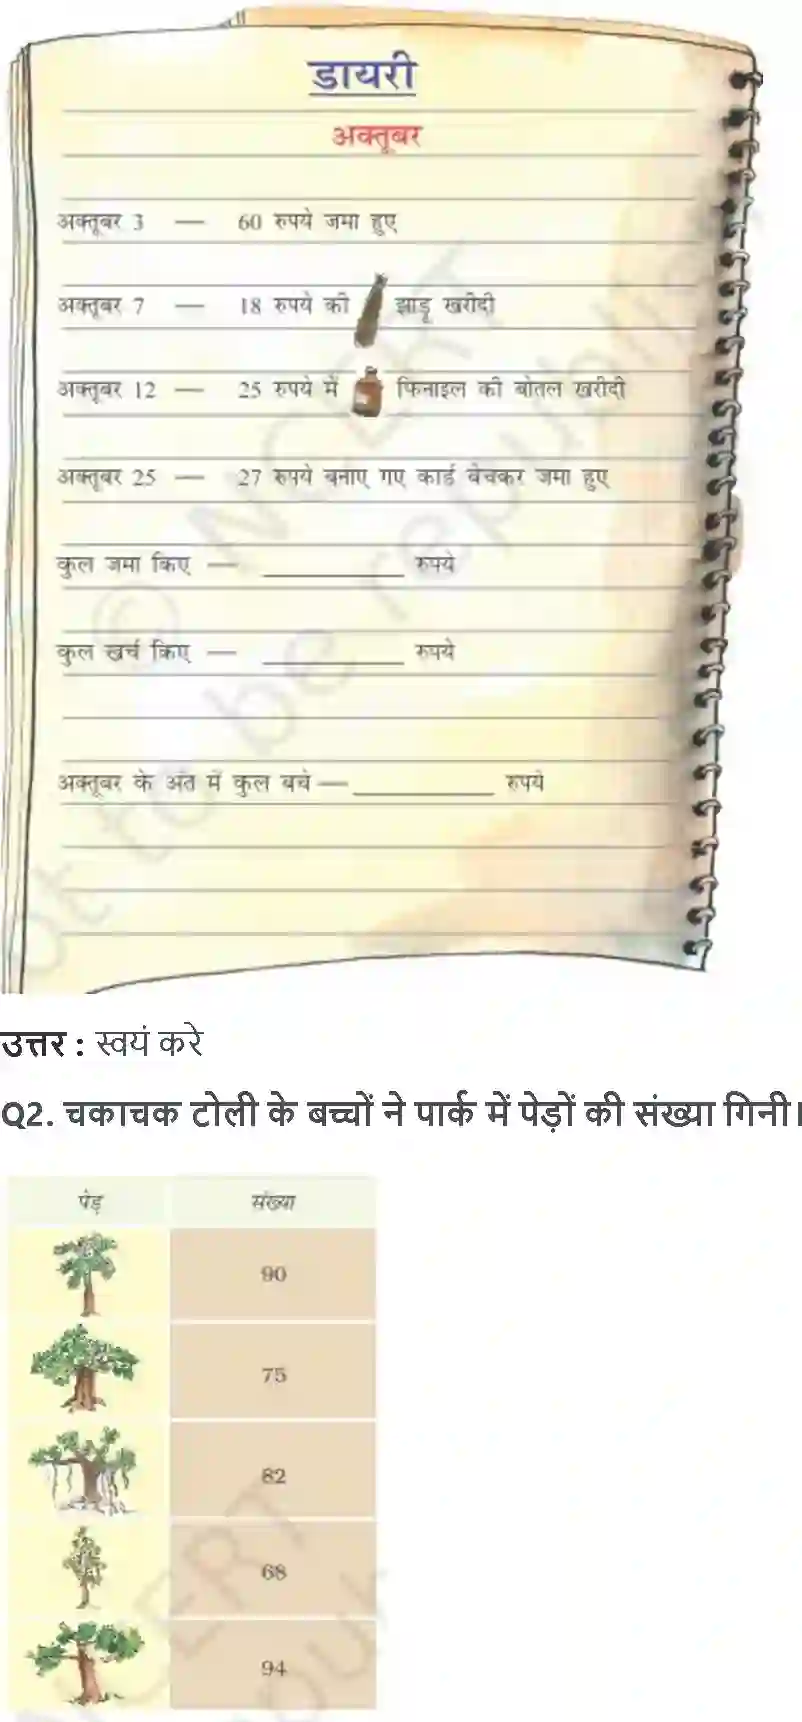 डायरी
अक्तूबर
अक्तूबर 3 — 60 रुपये जमा हुए
अक्तूबर 7 — 18 रुपये की झाड़ू खरीदी
अक्तूबर 12 — 25 रुपये में फिनाइल की बोतल खरीदी
अक्तूबर 25 — 27 रुपये बनाए गए कार्ड बेचकर जमा हुए
कुल जमा किए — __________ रुपये
कुल खर्च किए — __________ रुपये
अक्तूबर के अंत में कुल बचे — __________ रुपये
उत्तर : स्वयं करे
Q2. चकाचक टोली के बच्चों ने पार्क में पेड़ों की संख्या गिनी।
पेड़ संख्या
90
75
82
68
94
© NCERT
not to be republish